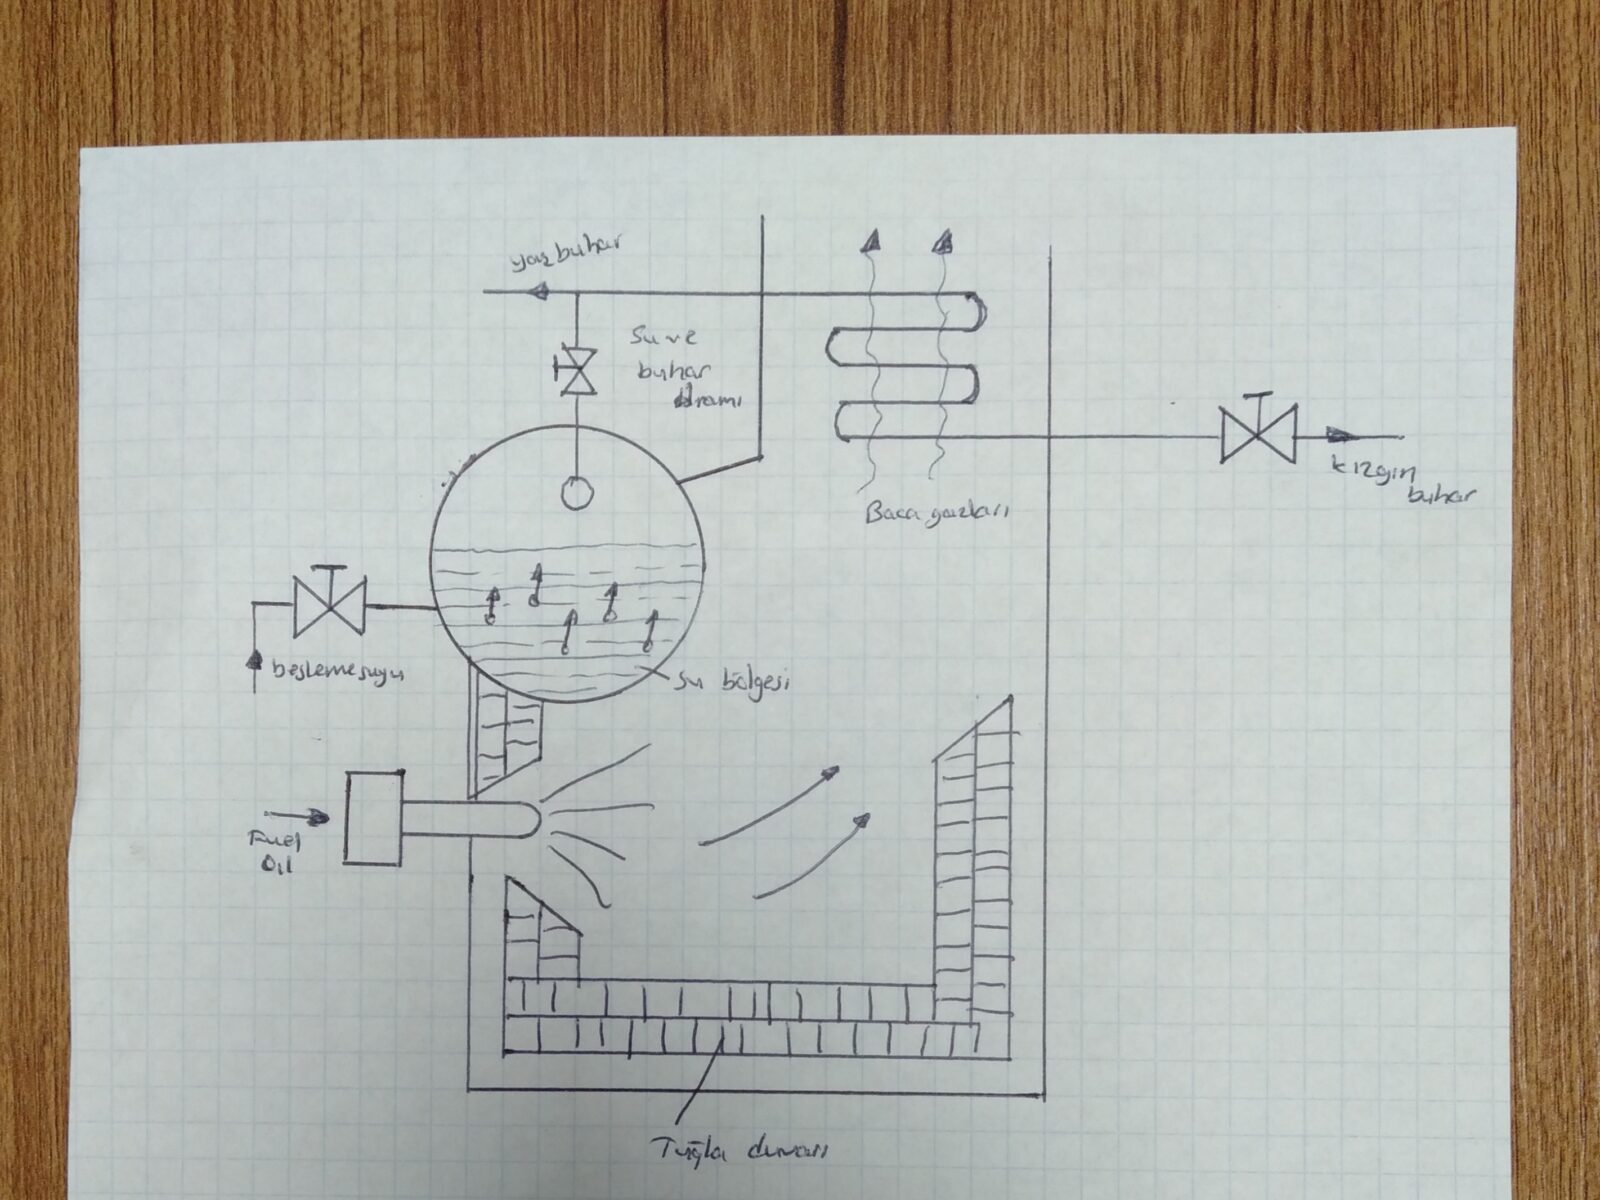 yaş buhar
Su ve
buhar
dramı
kızgın
buhar
Baca gazları
besleme suyu
su bölgesi
Fuel
Oil
Tuğla duvarı